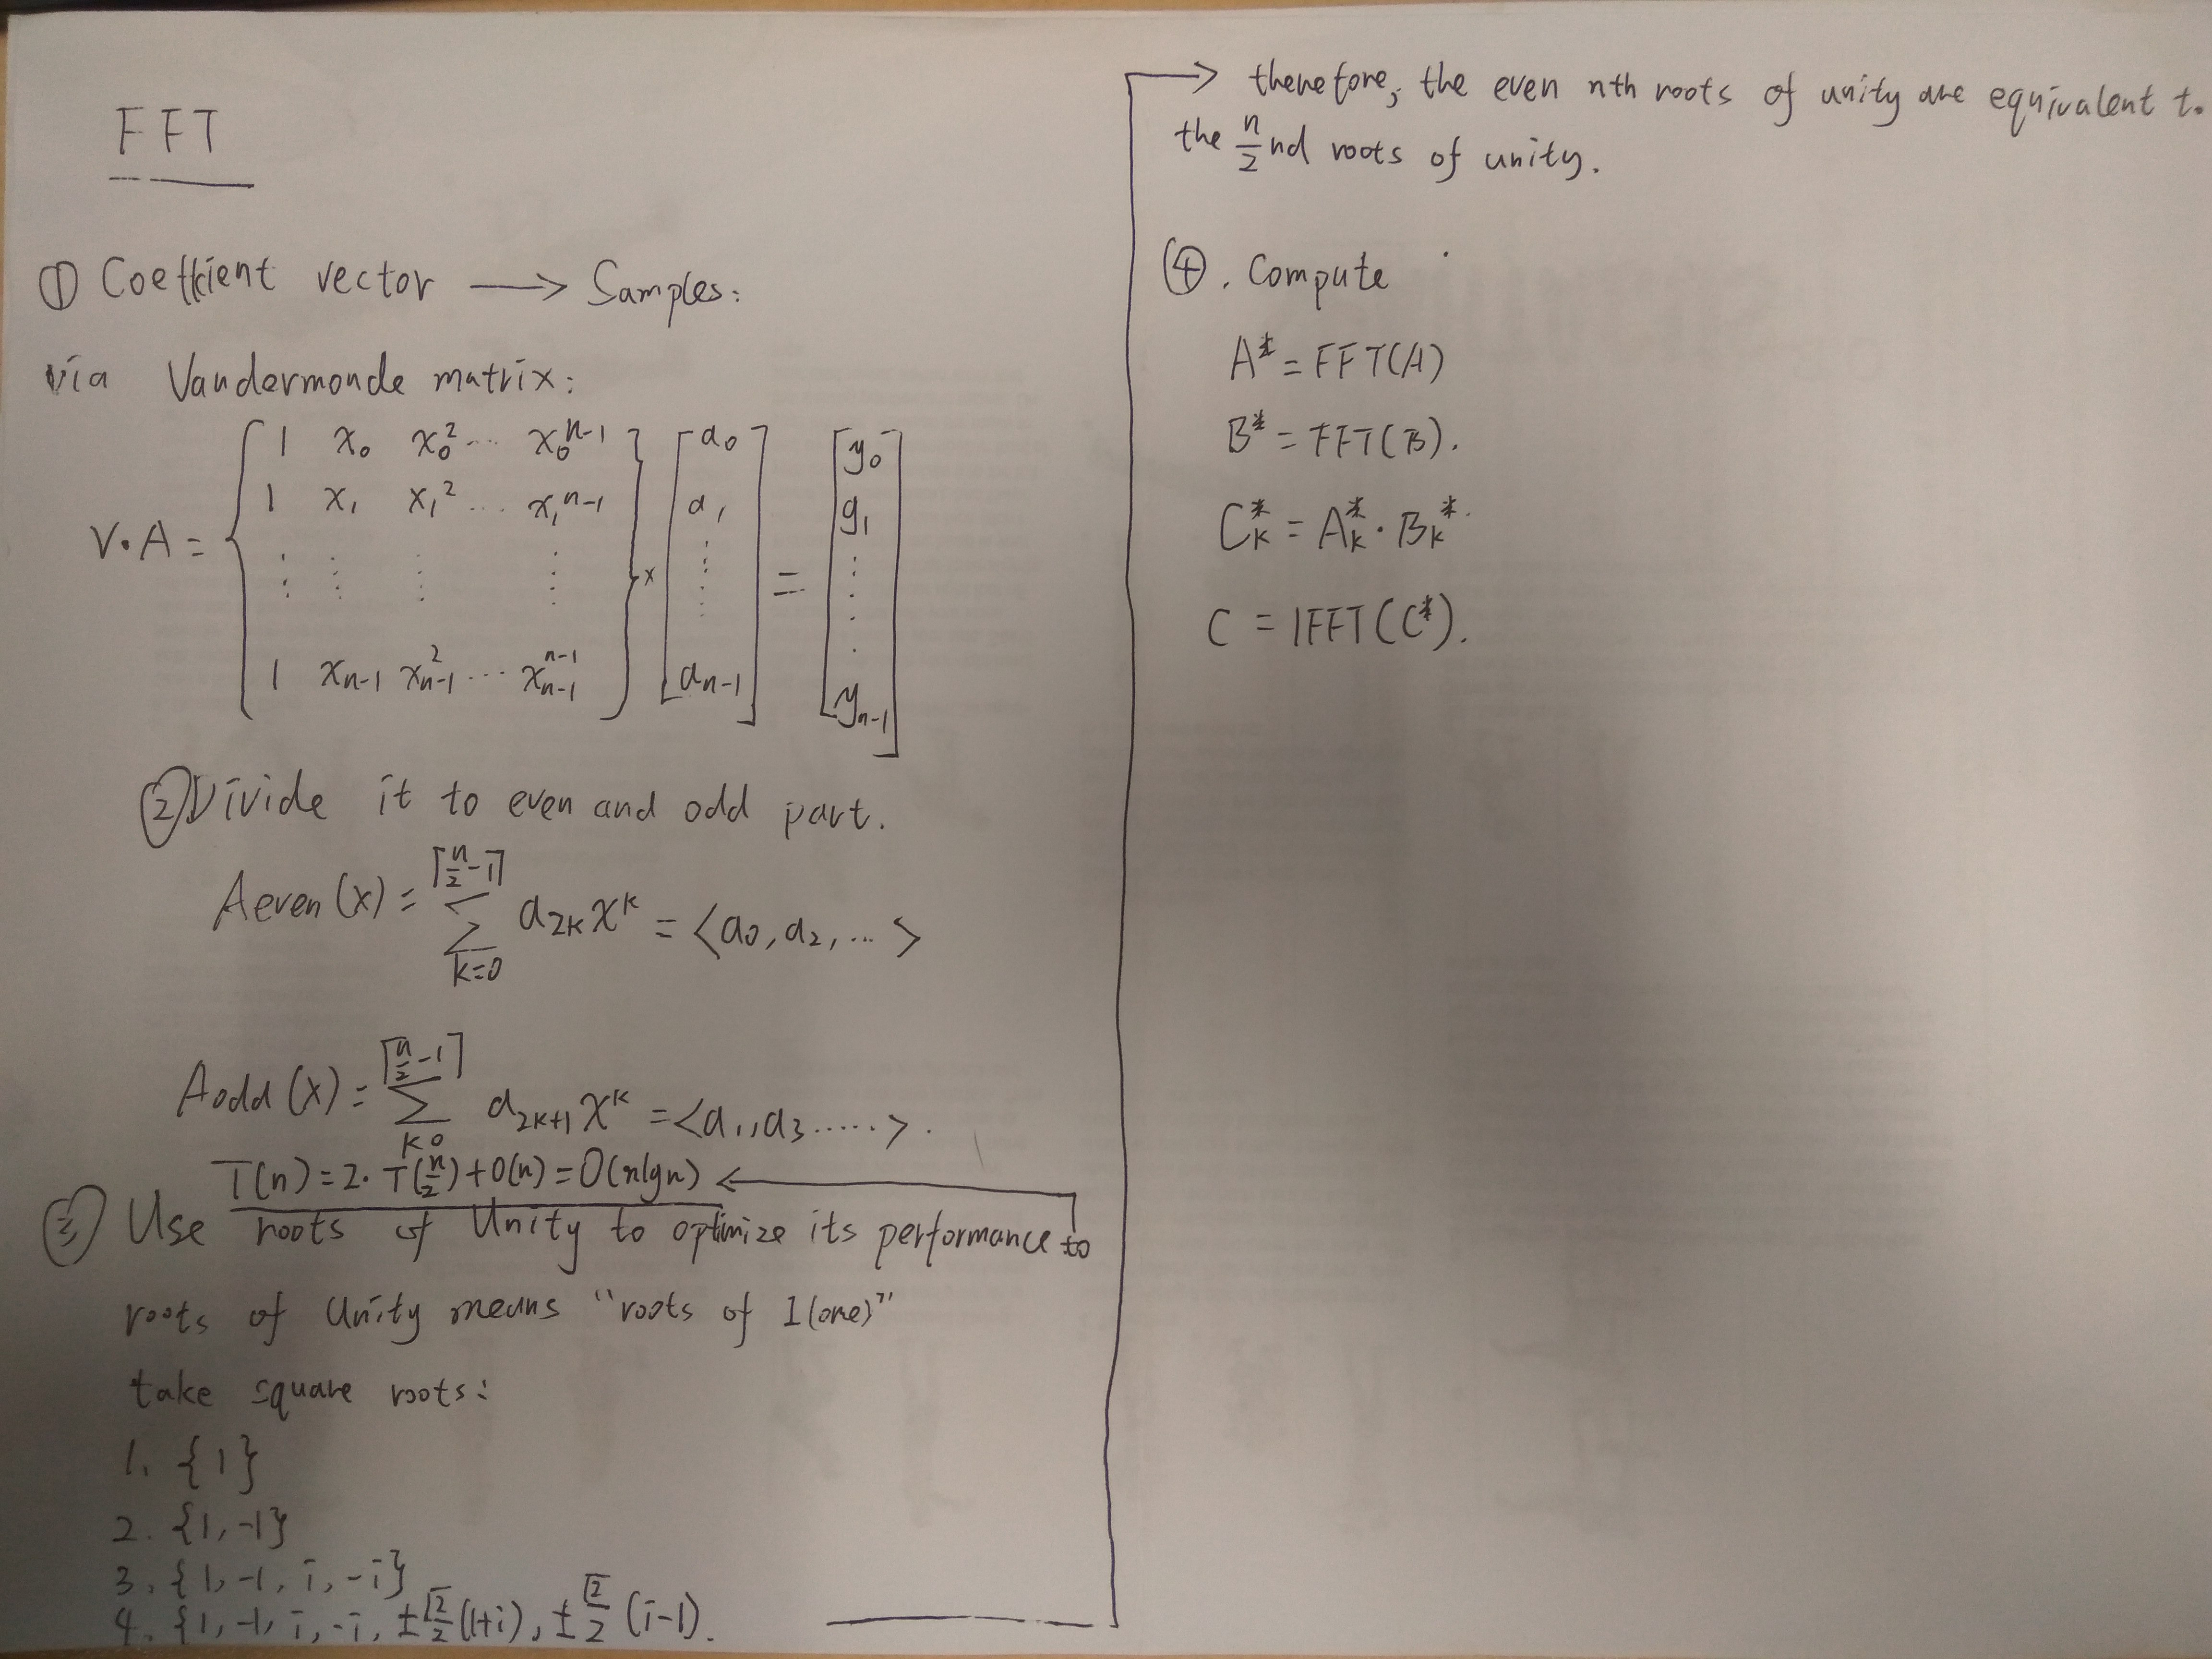 FFT
① Coefficient vector → Samples:
via Vandermonde matrix:
V·A = { 1 x₀ x₀² ... x₀ⁿ⁻¹ } [ a₀ ] [ y₀ ]
1 x₁ x₁² ... x₁ⁿ⁻¹ a₁ y₁
⋮ ⋮ ⋮ ⋮ × ⋮ = ⋮
1 xₙ₋₁ xₙ₋₁² ... xₙ₋₁ⁿ⁻¹ aₙ₋₁ yₙ₋₁
② Divide it to even and odd part.
Aeven(x) = ∑_{k=0}^{⌈n/2-1⌉} a_{2k} x^k = <a₀, a₂, ...>
Aodd(x) = ∑_{k=0}^{⌈n/2-1⌉} a_{2k+1} x^k = <a₁, a₃ .....>.
T(n) = 2·T(n/2) + O(n) = O(n lg n) ←
③ Use roots of Unity to optimize its performance to
roots of Unity means "roots of 1(one)"
take square roots:
1. {1}
2. {1, -1}
3. {1, -1, i, -i}
4. {1, -1, i, -i, ±√2/2 (1+i), ±√2/2 (i-1).
→ therefore, the even nth roots of unity are equivalent to
the n/2 nd roots of unity.
④. Compute
A* = FFT(A)
B* = FFT(B).
C*_k = A*_k · B_k*
C = IFFT(C*).